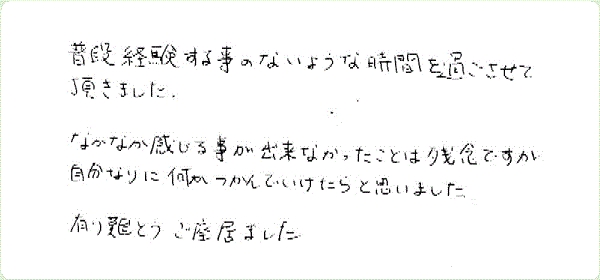 普段経験する事のないような時間を過ごさせて
頂きました.
なかなか感じる事が出来なかったことは残念ですが
自分なりに何かつかんでいけたらと思いました
有り難とうご座居ました